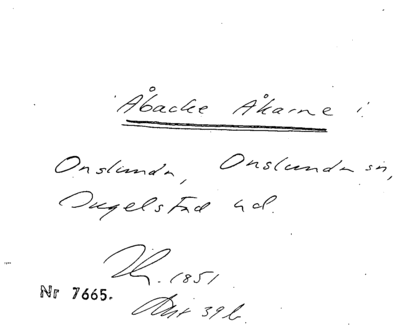 Åbacke Åkarne i
Onslunda, Onslunda sn,
Ingelstad hd.
1851.
Nr 7665.
39b.